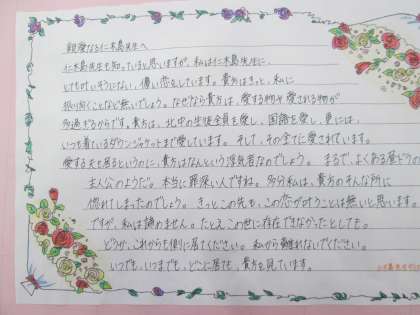 親愛なる仁木島先生へ
仁木島先生も知っていると思いますが、私は仁木島先生に、
とてもめいそうにない、儚い恋をしています。貴方はきっと、私に
振り向くことなど無いでしょう。なぜなら貴方は、愛する物や愛される物が
多過ぎるからです。貴方は、北中の生徒全員を愛し、国語を愛し、更には、
いつも着ているダウンジャケットまで愛しています。そして、その全てに愛されています。
愛する夫も居るというのに、貴方はなんという浮気者なのでしょう。まるで、よくある昼ドラの
主人公のようだ。本当に罪深い人ですね。多分私は、貴方のそんな所に
惚れてしまったのでしょう。きっとこの先も、この恋が叶うことは無いと思います。
ですが、私は諦めません。たとえこの世に存在できなかったとしても。
どうか、これからも側に居てください。私から離れないでください。
いつでも、いつまでも、どこに居ても、貴方を見ています。